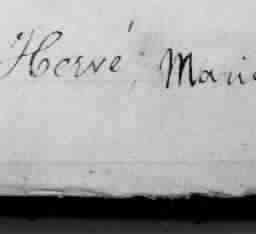 Hervé, Marie